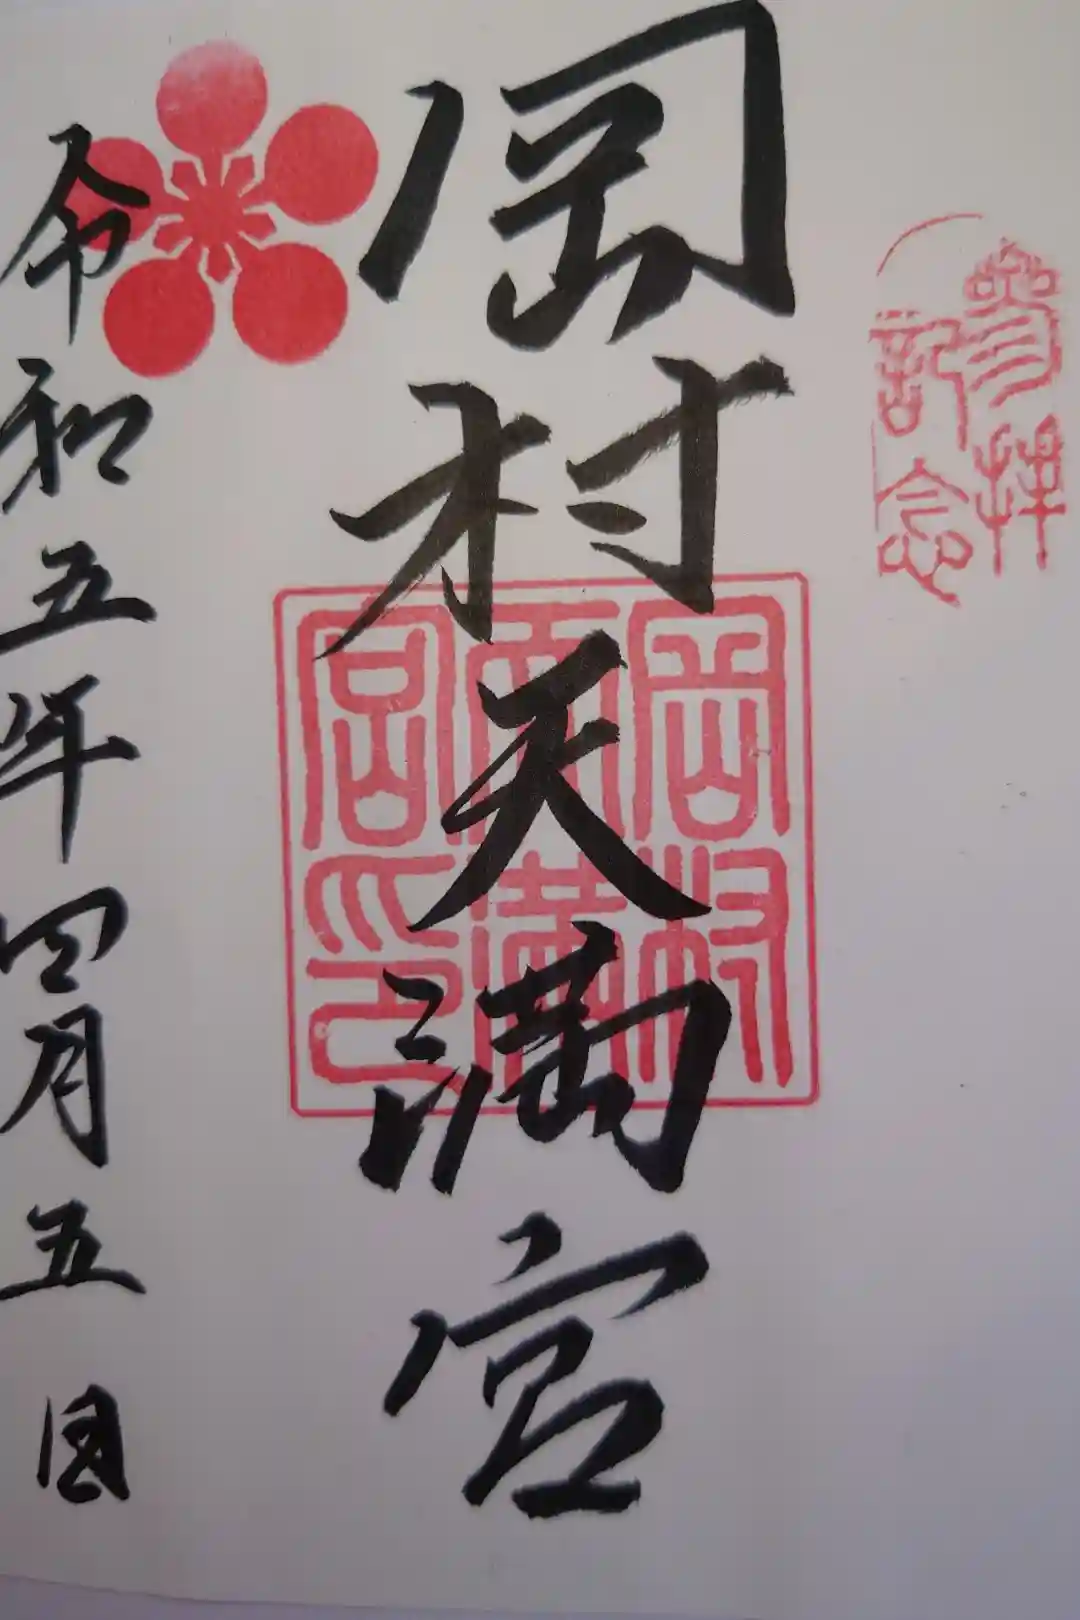 參拝
記念
岡村天満宮
岡村
天満
宮印
令和五年四月五日